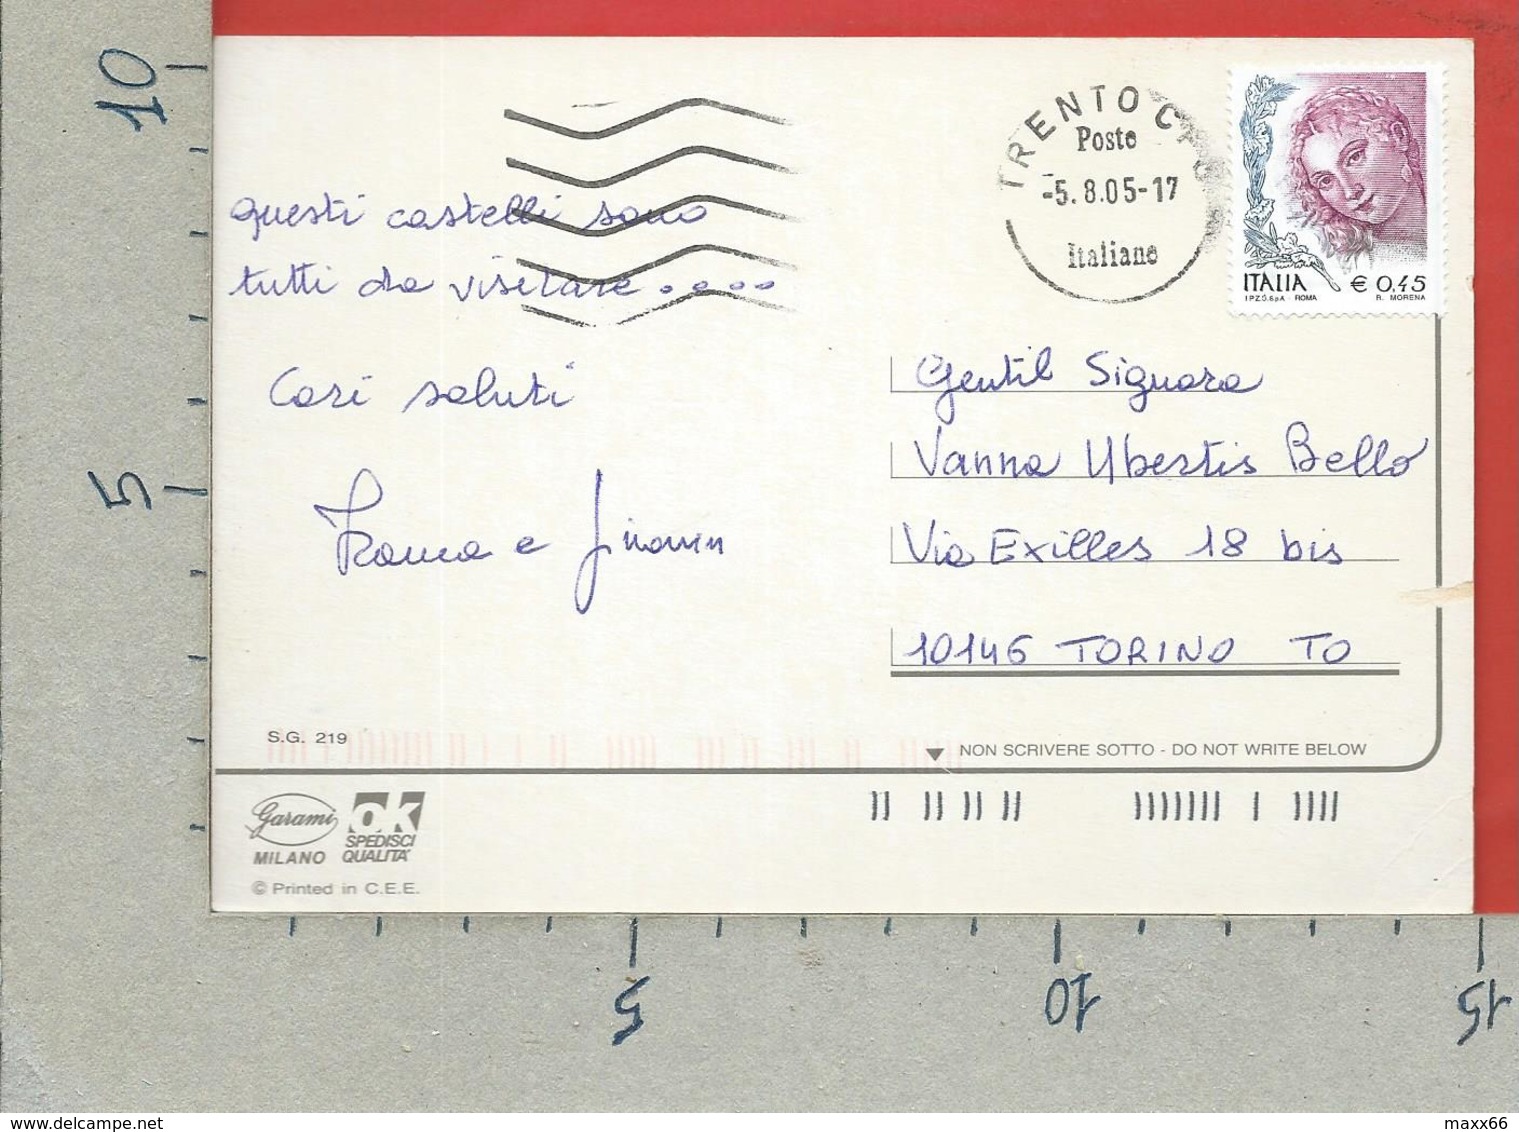 10
5
questi castelli sono
tutti da visitare....
Cari saluti
Franca e
TRENTO
Poste
-5.8.05-17
Italiane
ITALIA € 0,45
I.P.Z.S. S.p.A. - ROMA R. MORENA
Gentil Signora
Vanna Ubertis Bello
Via Exilles 18 bis
10146 TORINO TO
S.G. 219
NON SCRIVERE SOTTO - DO NOT WRITE BELOW
Garami
MILANO
OK
SPEDISCI
QUALITA'
© Printed in C.E.E.
5
10
15
maxx66